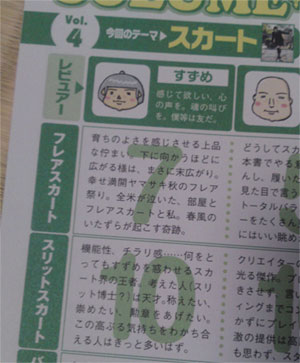 Vol.
4
今回のテーマ▶スカート
レビュアー
すずめ
感じて欲しい、心
の声を。魂の叫び
を。僕等は友だ。
フレアスカート
育ちのよさを感じさせる上品
な佇まい。下に向かうほどに
広がる様は、まさに末広がり。
幸せ満開ヤマサキ秋のフレア
祭り。全米が泣いた、部屋と
フレアスカートと私。春風の
いたずらが起こす奇跡。
どうしてスカ
本書でやる
んし、履いた
見た目で言う
トータルバラ
ーをたくさん
にはいい眺め
スリットスカート
機能性、チラリ感……何をと
ってもすずめを惑わせるスカ
ート界の王者。考えた人(スリ
ット博士?)は天才。称えたい、
崇めたい、勲章をあげたい。
この高ぶる気持ちをわかち合
える人はきっと多いはず。
クリエイター
光る傑作。プ
きさせず、言い
イングまでコン
かずにプレイ
激の提供は高
も思わず、